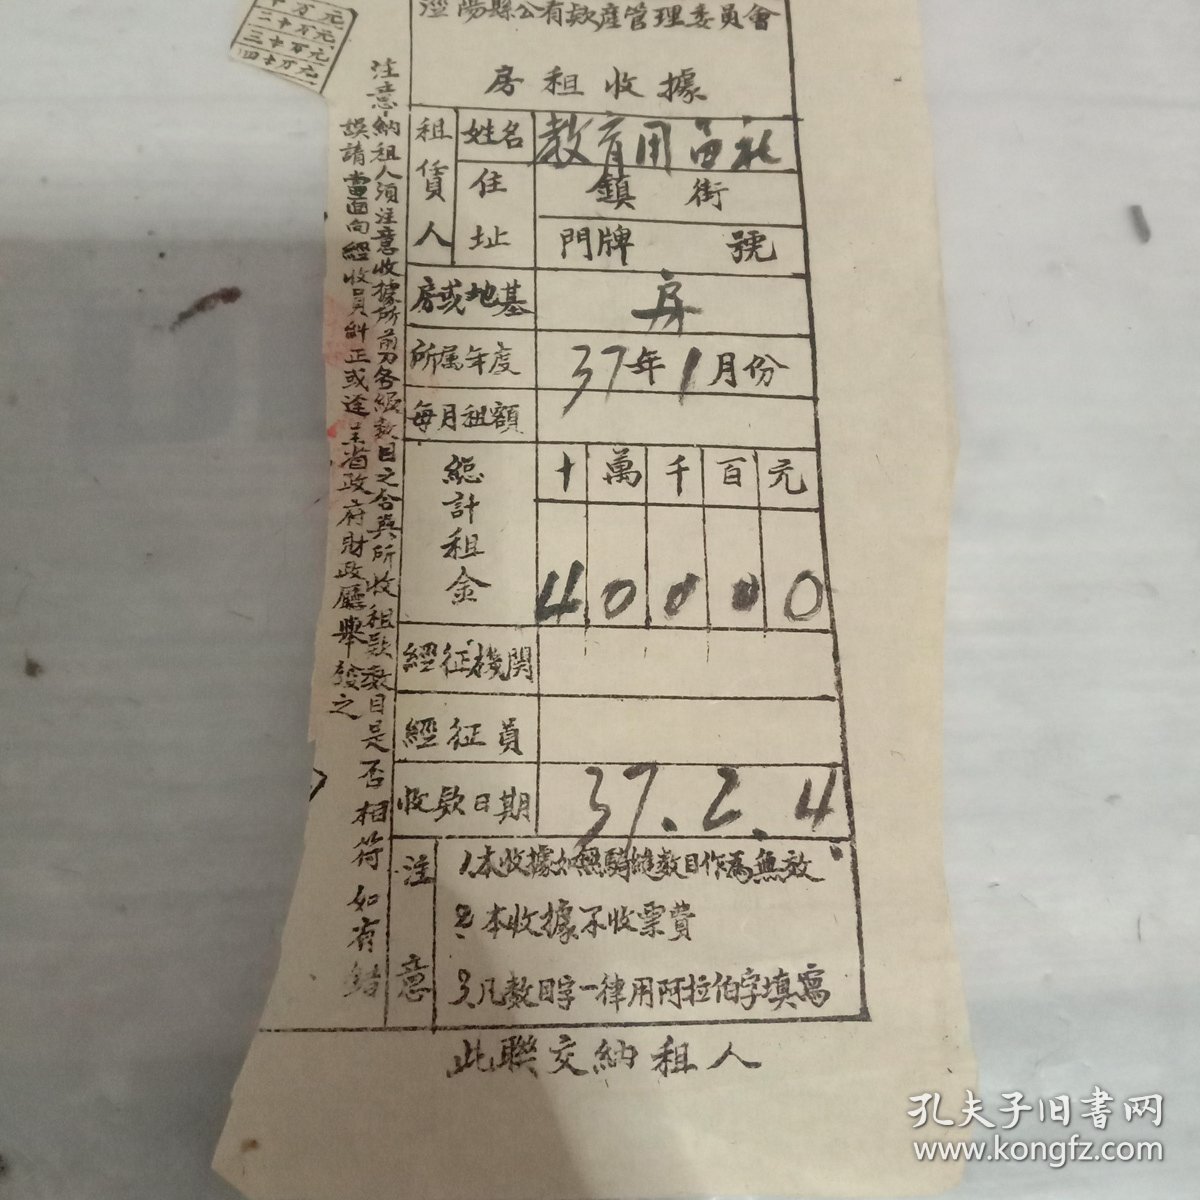 十万元
二十万元
三十万元
四十万元
涇陽縣公有款產管理委員會
房租收據
租賃人
姓名
教育用品社
住址
鎮 街
門牌 號
房或地基
房
所屬年度
37年1月份
每月租額
總計租金
十 萬 千 百 元
4 0 0 0 0
經征機関
經征員
收款日期
37.2.4
注意
1.本收據如無騎縫數目作為無效
2.本收據不收票費
3.凡數目字一律用阿拉伯字填寫
此聯交納租人
注意納租人須注意收據所剪各級數目之合與所收租款數目是否相符如有錯
誤請當面向經收員糾正或逕呈省政府財政廳舉發之
孔夫子旧书网
www.kongfz.com